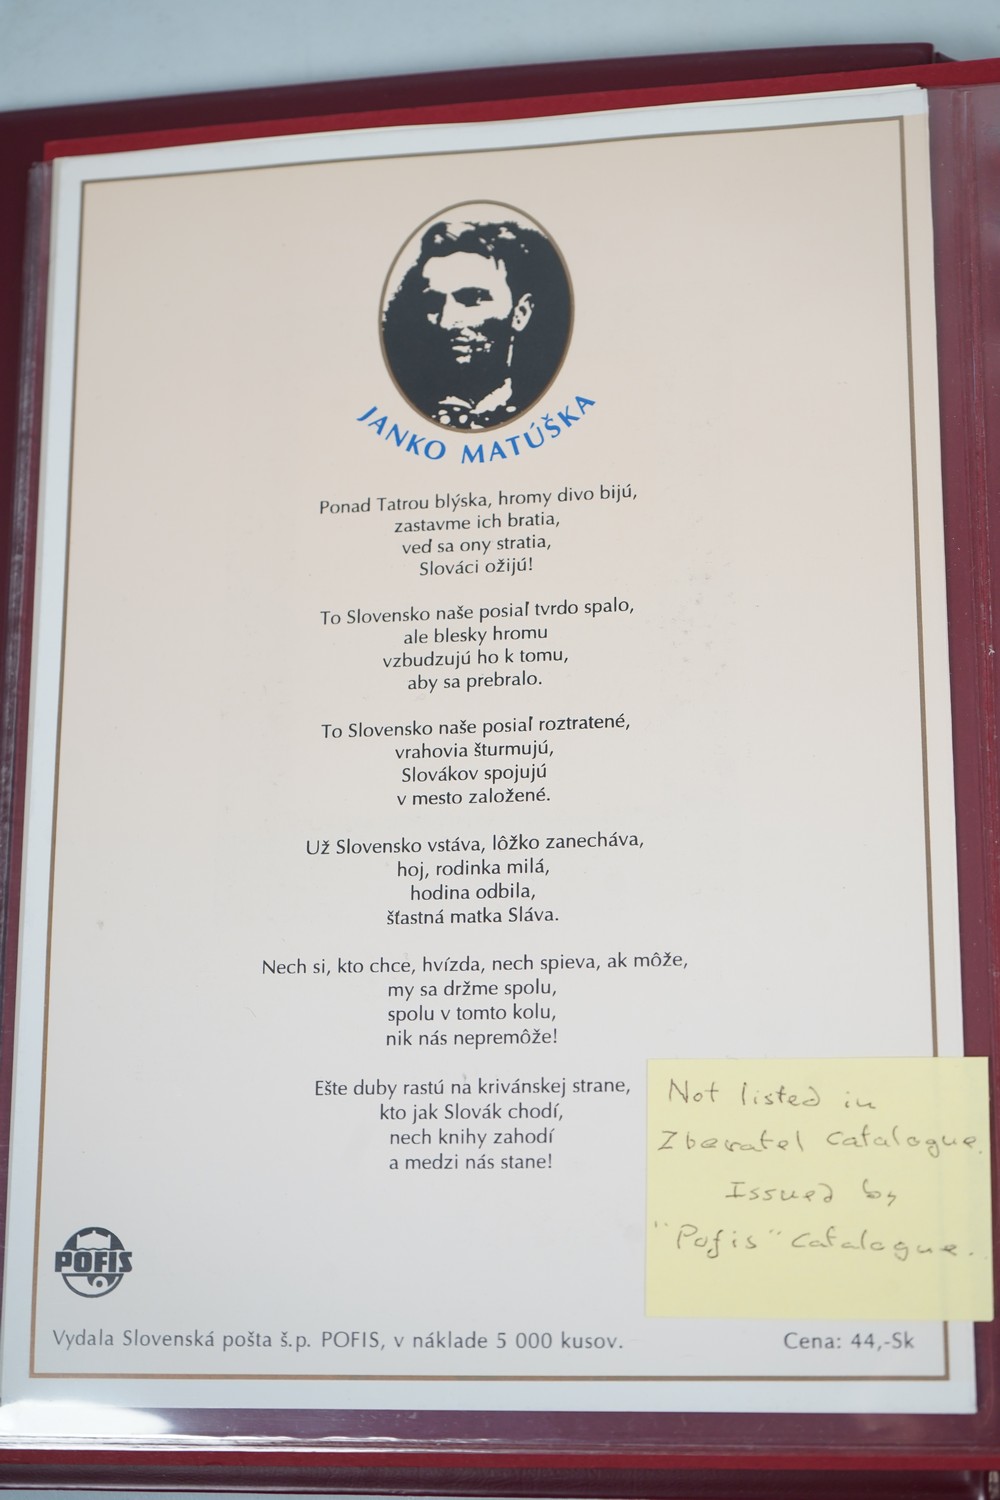 JANKO MATÚŠKA
Ponad Tatrou blýska, hromy divo bijú,
zastavme ich bratia,
veď sa ony stratia,
Slováci ožijú!
To Slovensko naše posiaľ tvrdo spalo,
ale blesky hromu
vzbudzujú ho k tomu,
aby sa prebralo.
To Slovensko naše posiaľ roztratené,
vrahovia šturmujú,
Slovákov spojujú
v mesto založené.
Už Slovensko vstáva, lôžko zanecháva,
hoj, rodinka milá,
hodina odbila,
šťastná matka Sláva.
Nech si, kto chce, hvízda, nech spieva, ak môže,
my sa držme spolu,
spolu v tomto kolu,
nik nás nepremôže!
Ešte duby rastú na krivánskej strane,
kto jak Slovák chodí,
nech knihy zahodí
a medzi nás stane!
Not listed in
Zberatel Catalogue.
Issued by
"Pofis" Catalogue.
POFIS
Vydala Slovenská pošta š.p. POFIS, v náklade 5 000 kusov.
Cena: 44,-Sk